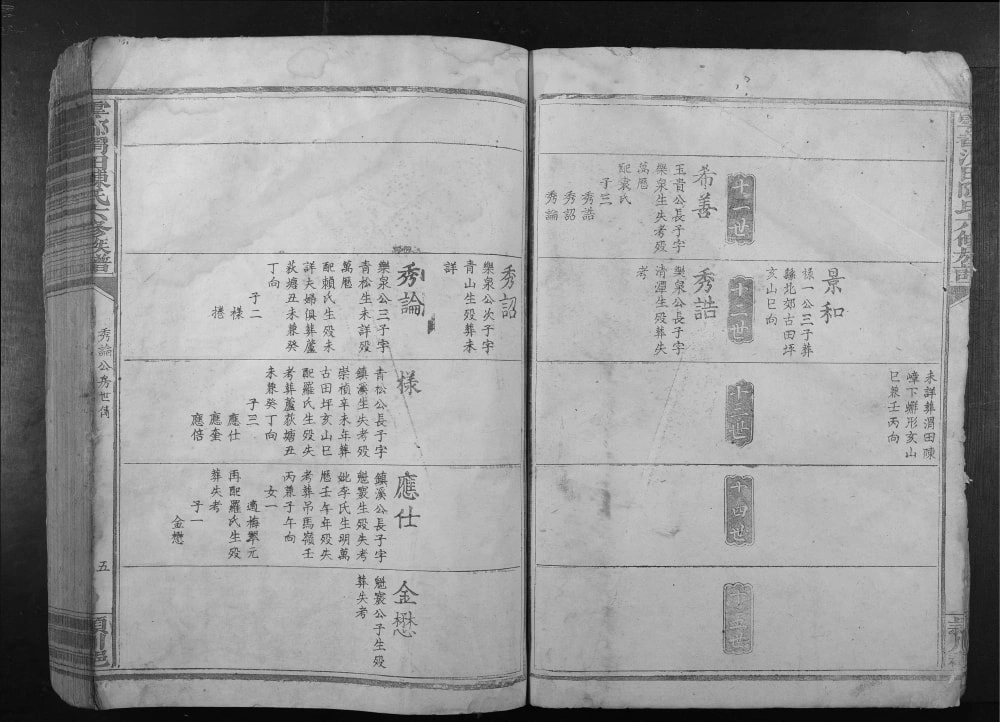 未詳葬渭田陳
嶂下螂形亥山
巳兼壬丙向
景和
樣一公三子葬
縣北郊古田坪
亥山巳向
十一世
十二世
十三世
十四世
十五世
希善
玉貴公長子字
樂泉生失考歿
萬曆
配袁氏
子三
秀誥
秀詔
秀論
秀誥
樂泉公長子字
清潭生歿葬失
考
秀詔
樂泉公次子字
青山生歿葬未
詳
秀論
樂泉公三子字
青松生未詳歿
萬曆
配賴氏生歿未
詳夫婦俱葬蘆
荻塘丑未兼癸
丁向
子二
樣
捲
樣
青松公長子字
鎮溪生失考歿
崇禎辛未年葬
古田坪亥山巳
配羅氏生歿失
考葬蘆荻塘丑
未兼癸丁向
子三
應仕
應奎
應倍
應仕
鎮溪公長子字
魁寰生歿失考
妣李氏生明萬
曆壬午年歿失
考葬吊馬嶺壬
丙兼子午向
女一
適梅翠元
再配羅氏生歿
葬失考
子一
金懋
金懋
魁寰公子生歿
葬失考
秀論公房世傳
五